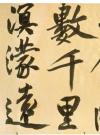 數千里
溟濛遠